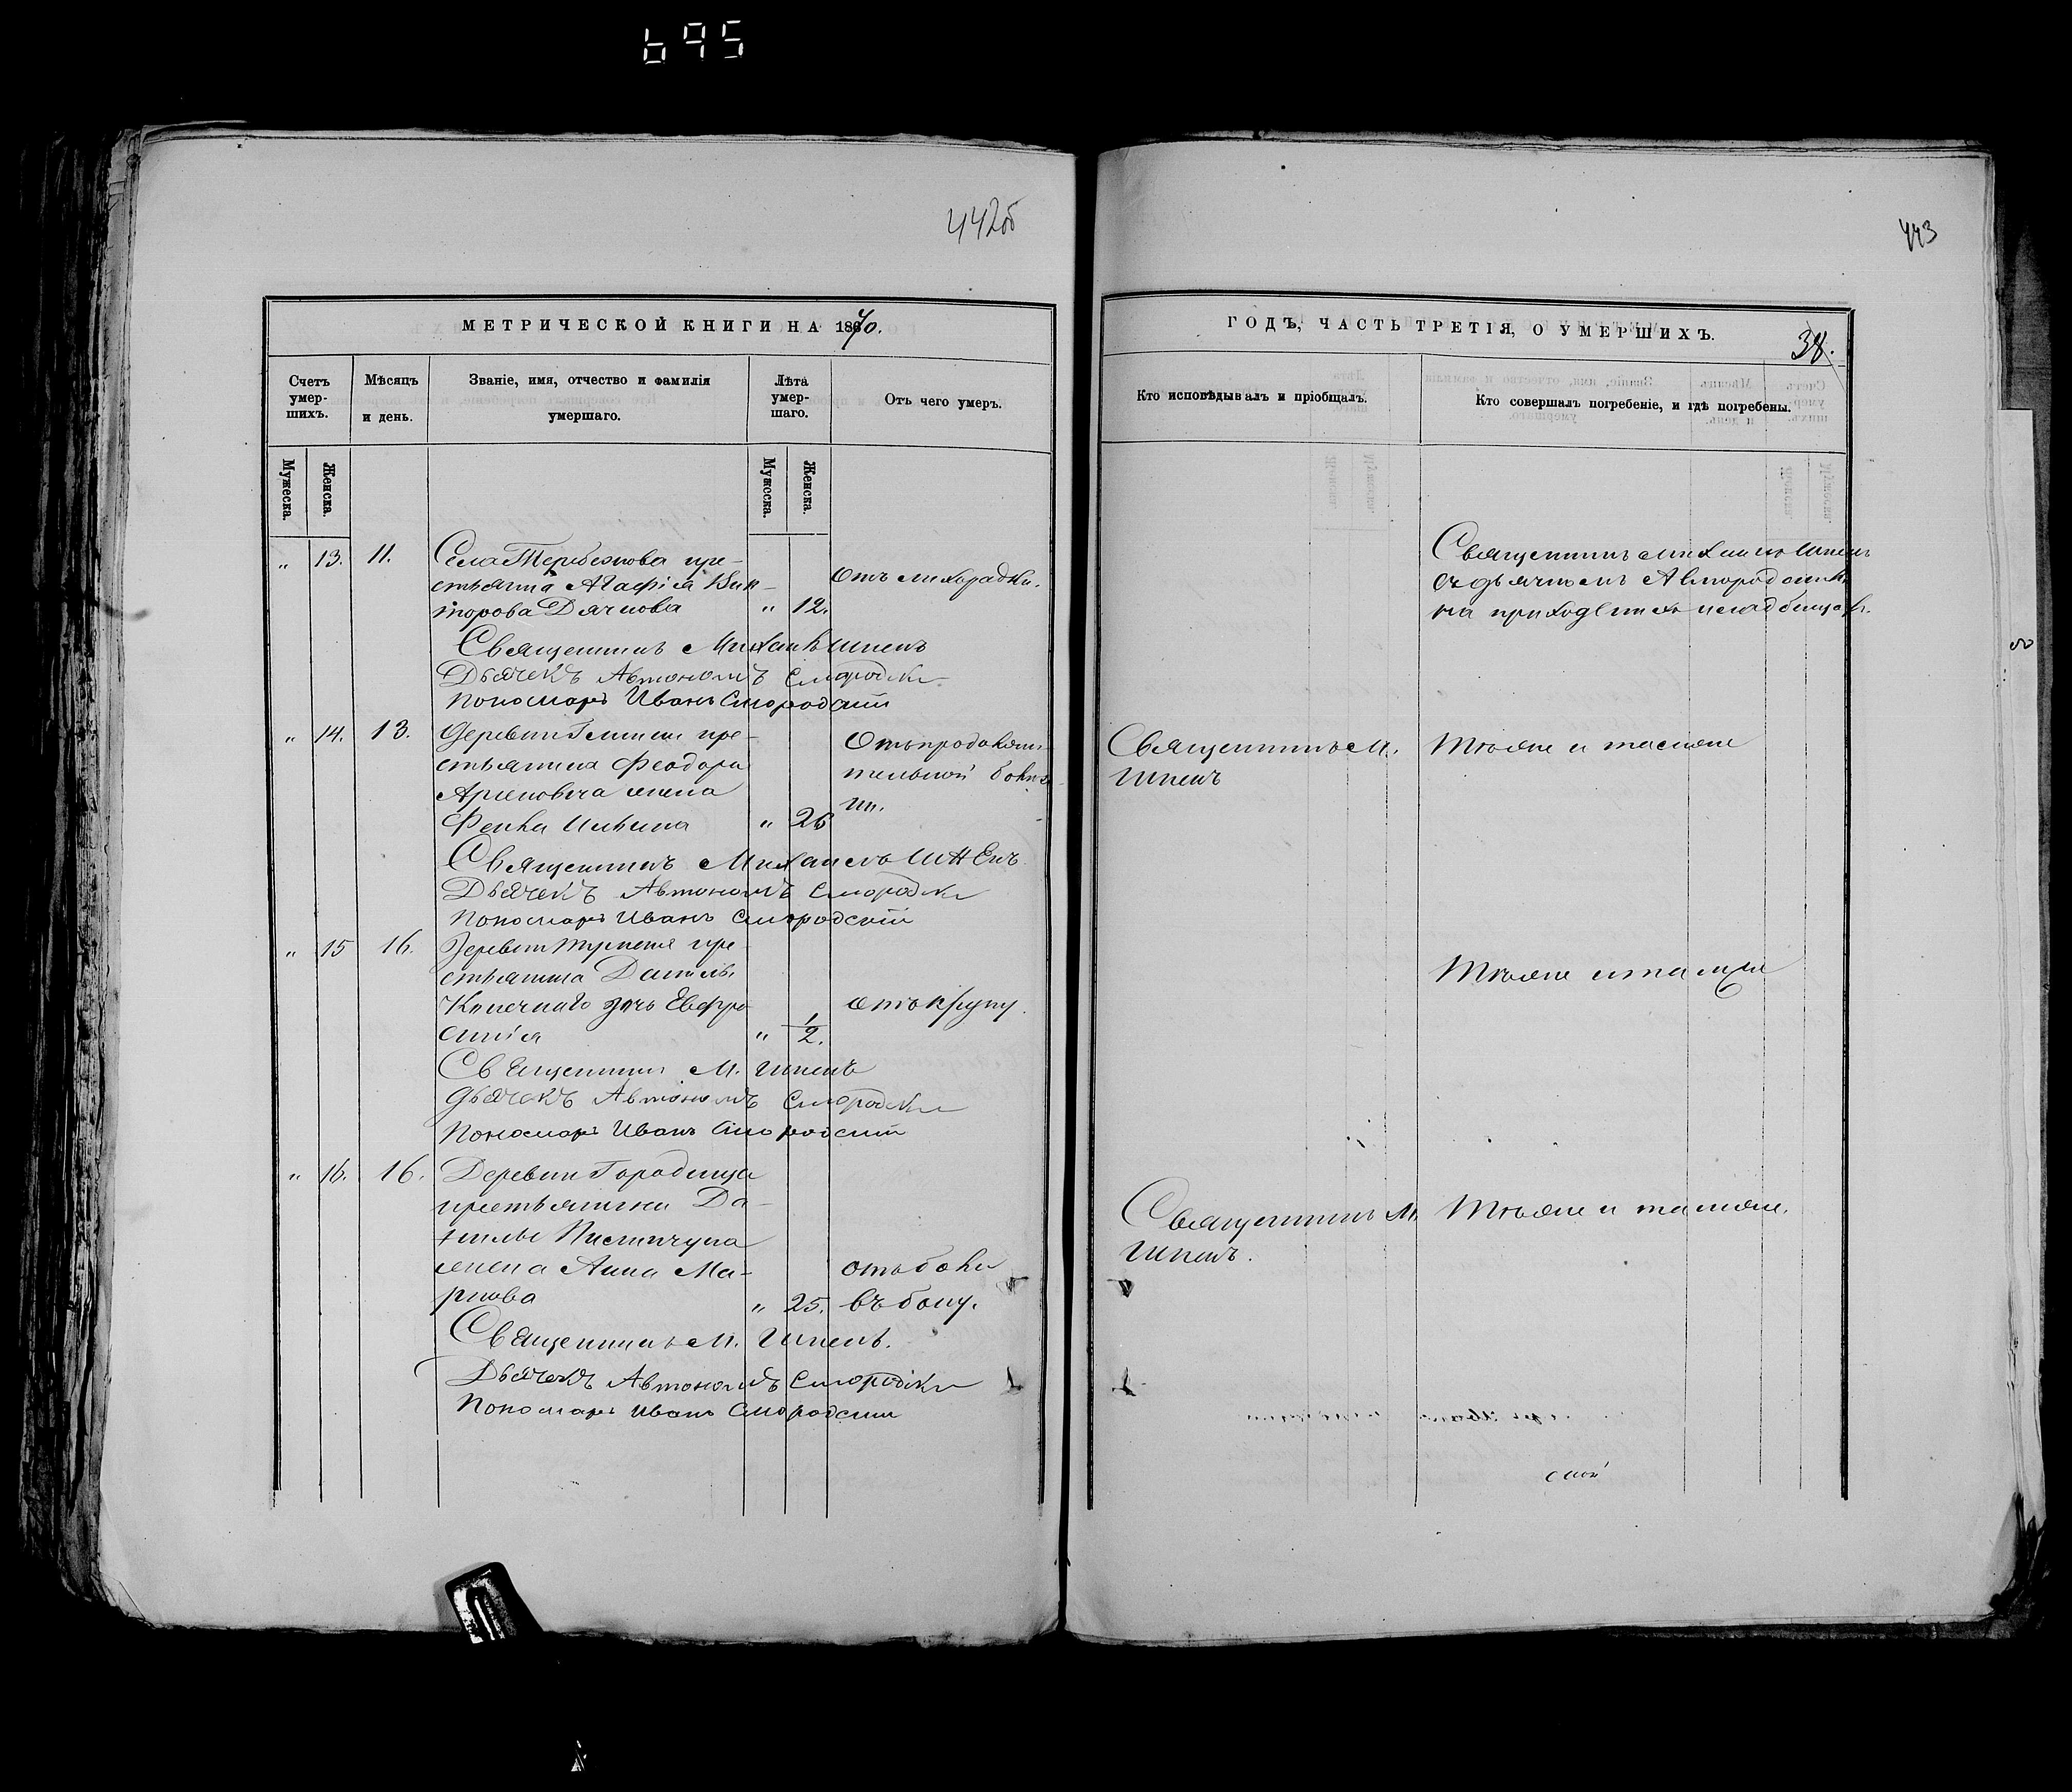 695
442об
МЕТРИЧЕСКОЙ КНИГИ НА 1870.
Счетъ умер-шихъ.
Мѣсяцъ и день.
Званіе, имя, отчество и фамилія умершаго.
Лѣта умер-шаго.
Отъ чего умеръ.
Мужеска.
Женска.
Мужеска.
Женска.
" 13. 11. Села Теребежова кре-
стьянка Агафія Вик- Отъ лихорадки.
торова Дячкова " 12.
Священникъ Михаилъ Шпенъ
Дьячекъ Автономъ Смородски
Пономарь Иванъ Смородскій
" 14. 13. Деревни кре- Отъ продолжи-
стьянина Феодора тельной болѣз-
жена ни.
Фекла " 26
Священникъ Михаилъ Шпенъ
Дьячекъ Автономъ Смородски
Пономарь Иванъ Смородскій
" 15 16. Деревни кре-
стьянина Данилы
дочь Евфро- отъ крупу.
синія " 1/2.
Священникъ М. Шпенъ
Дьячекъ Автономъ Смородски
Пономарь Иванъ Смородскій
" 16. 16. Деревни Городища
крестьянина Да-
нилы
жена Анна Ма- отъ боли
ркова " 25. въ боку.
Священникъ М. Шпенъ.
Дьячекъ Автономъ Смородски
Пономарь Иванъ Смородскій
443
ГОДЪ, ЧАСТЬ ТРЕТІЯ, О УМЕРШИХЪ.
38.
Кто исповѣдывалъ и пріобщалъ.
Кто совершалъ погребеніе, и гдѣ погребены.
Священникъ Михаилъ Шпенъ
съ дьячкомъ А.
на приходскомъ кладбищѣ.
Священникъ М. Тѣже и тамже
Шпенъ
Тѣже и тамже
Священникъ М. Тѣже и тамже.
Шпенъ.